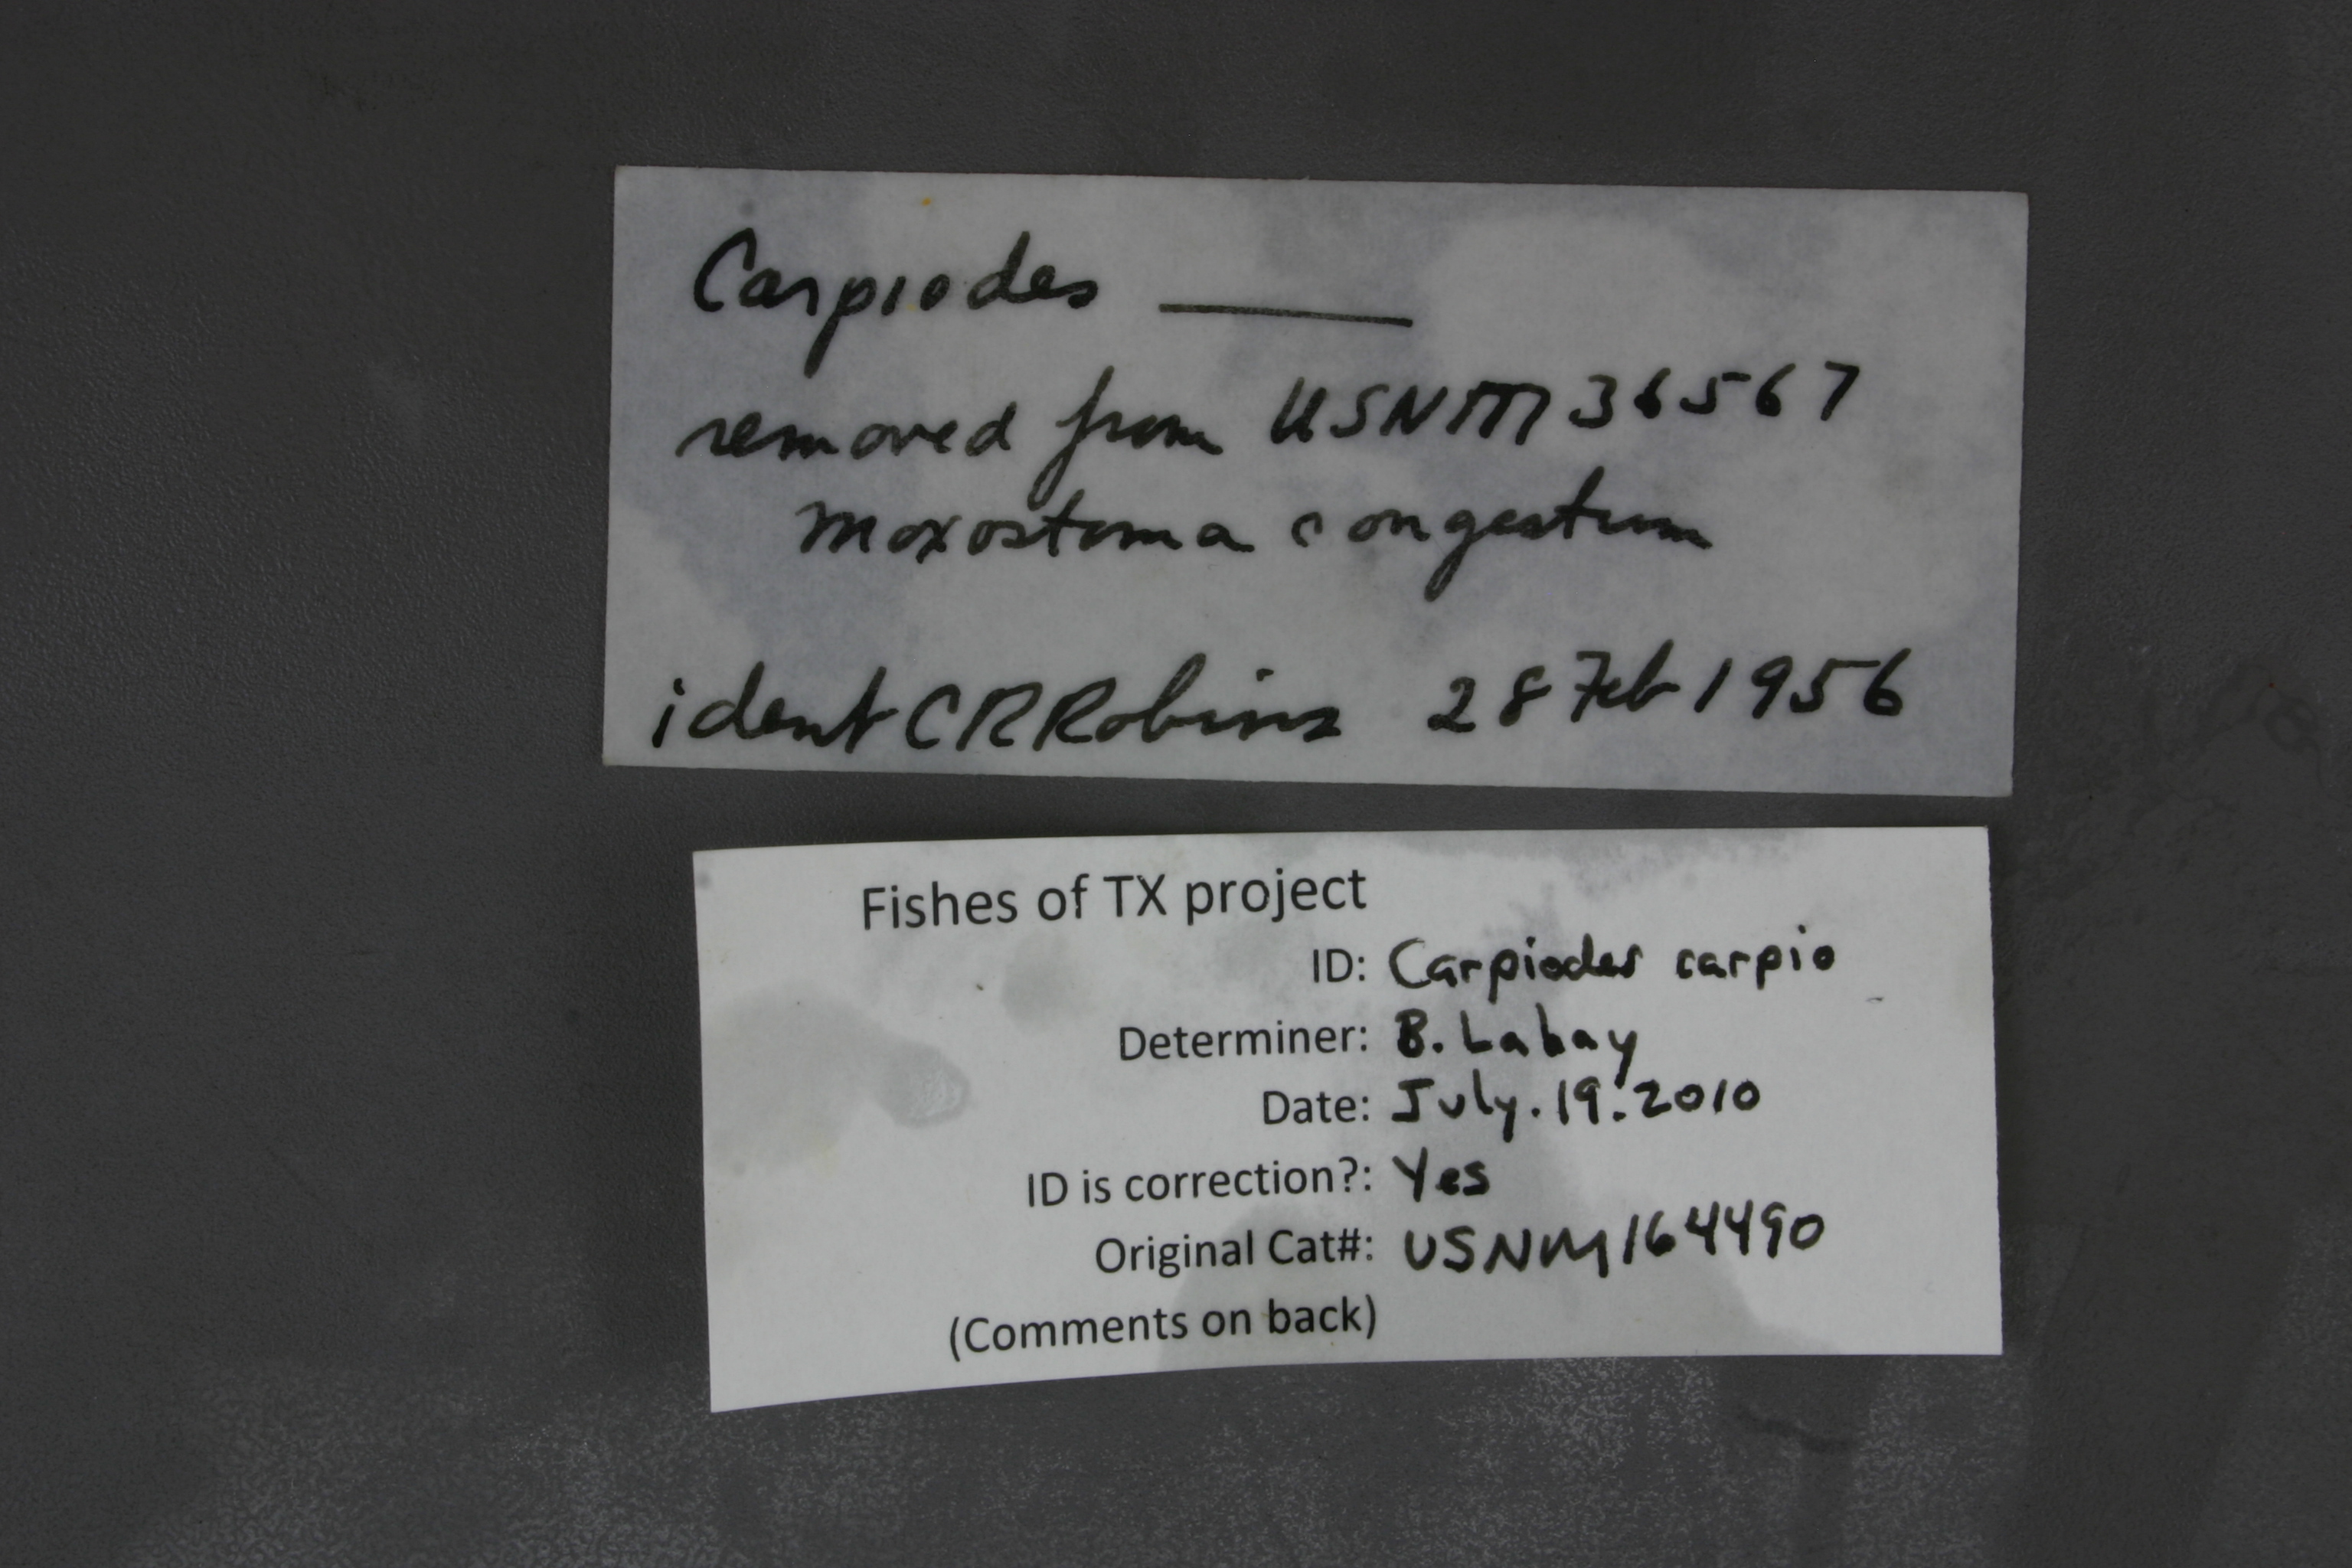 Carpiodes ____
removed from USNM 36567
Moxostoma congestum
ident CR Robins 28 Feb 1956
Fishes of TX project
ID: Carpiodes carpio
Determiner: B. Labay
Date: July.19.2010
ID is correction?: Yes
Original Cat#: USNM164490
(Comments on back)